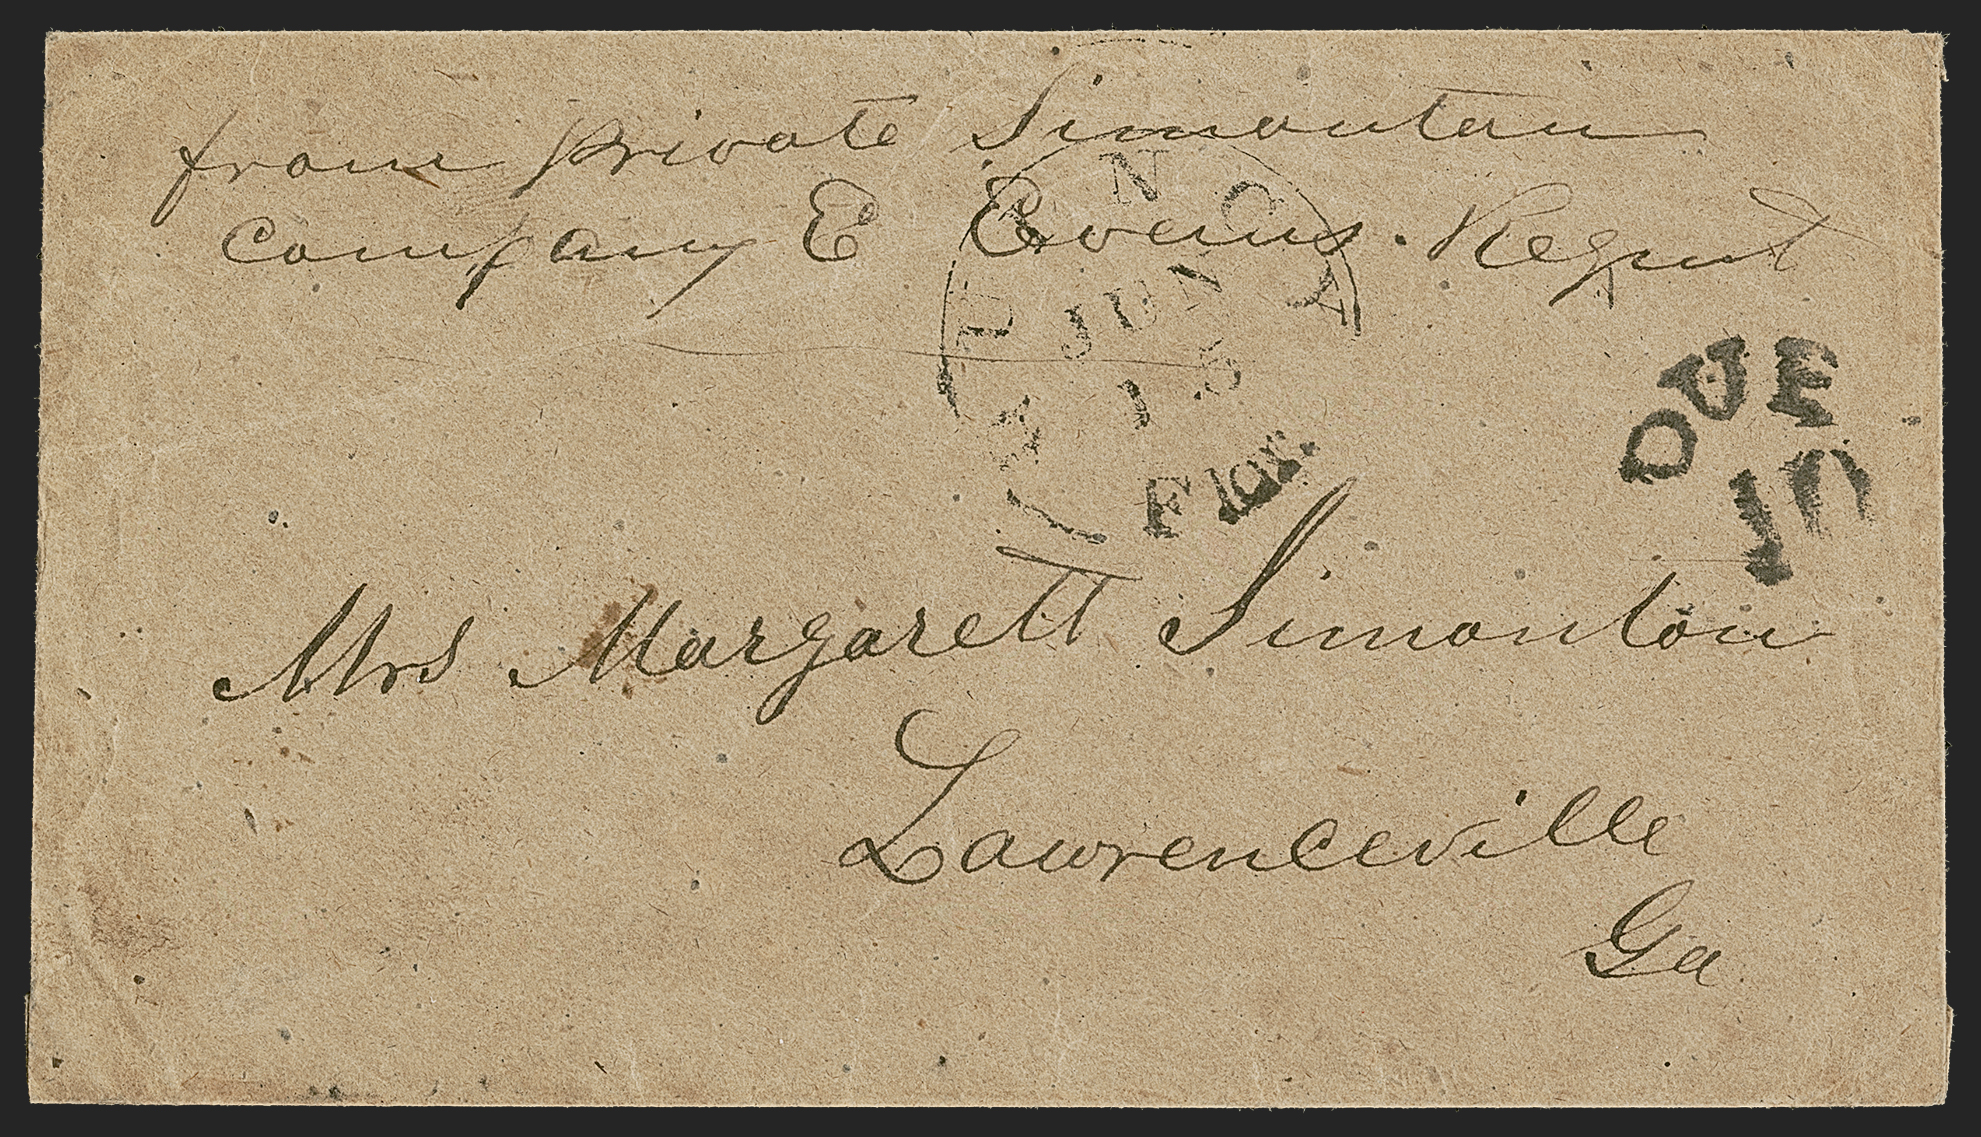 from private Simonton
Company E Evans. Regmt
QUINCY
JUN
15
Flor.
DUE
10
Mrs Margarett Simonton
Lawrenceville
Ga